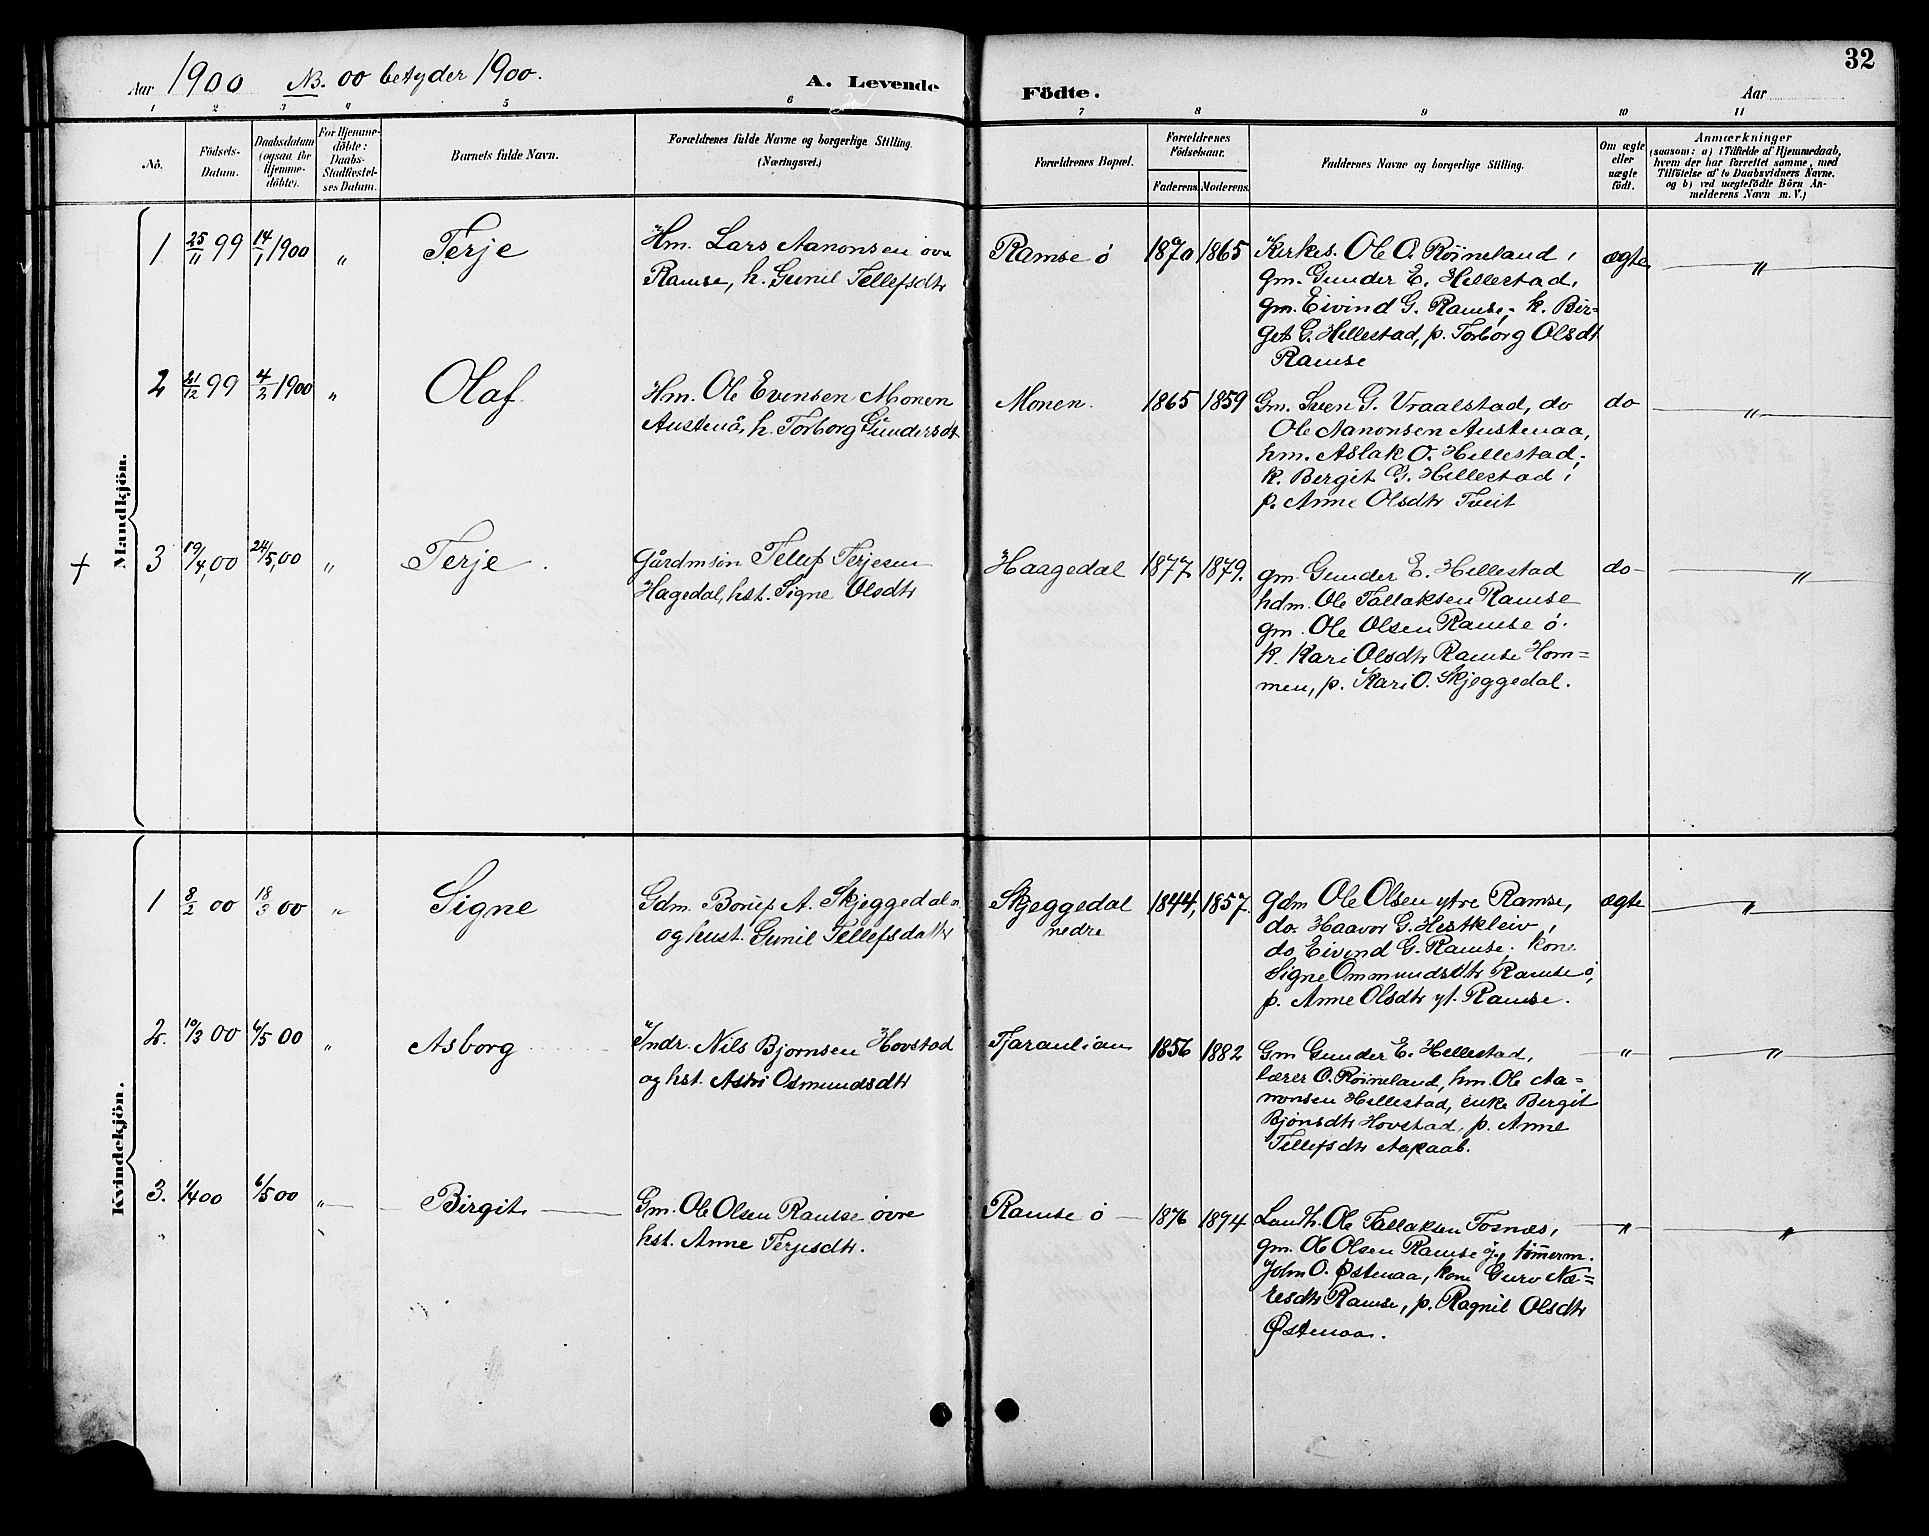 32
Aar 1900 NB. 00 betyder 1900.
A. Levende Födte.
Aar
1 2 3 4 5 6 7 8 9 10 11
No.
Födsels-
Datum.
Daabsdatum
(ogsaa for
Hjemme-
döbte).
For Hjemme-
döbte:
Daabs-
Stadfæstel-
ses Datum.
Barnets fulde Navn.
Forældrenes fulde Navne og borgerlige Stilling.
(Næringsvei.)
Forældrenes Bopæl.
Forældrenes
Födselsaar.
Faderens. Moderens.
Faddernes Navne og borgerlige Stilling.
Om ægte
eller
uægte
födt.
Anmærkninger
(saasom: a) i Tilfælde af Hjemmedaab,
hvem der har forrettet samme, med
Tilföielse af to Daabsvidners Navne.
og b) ved uægtefödte Börn An-
melderens Navn m. V.)
Mandkjön.
1 25/11 99 14/1 1900 " Terje
Hm. Lars Aanonsen øvre
Ramse, h. Gunil Tellefsdtr
Ramse ø 1870 1865
Kirkes. Ole O. Røineland,
gm. Gunder E. Hillestad,
gm. Eivind G. Ramse; k. Bir=
get G. Hillestad, p. Torborg Olsdt
Ramse
ægte "
2 21/12 99 4/2 1900 " Olaf
Hm. Ole Evensen Monen
Austenå, h. Torborg Gundersdt
Monen. 1865 1859
Gm. Sven G. Vraalstad, do
Ole Aanonsen Austenaa,
hm. Aslak O. Hillestad;
k. Bergit G. Hillestad,
p. Anne Olsdtr Tveit
do "
+ 3 19/4,00 24/5,00 " Terje
Gårdmsøn Tellef Terjesen
Hagedal, hst. Signe Olsdtr
Haagedal 1877 1879.
gm. Gunder E. Hillestad
hdm. Ole Tallaksen Ramse
gm. Ole Olsen Ramse ø.
k. Kari Olsdtr Ramse Hom=
men, p. Kari O. Skjeggedal.
do "
Kvindekjön.
1 8/2 00 18/3 00 " Signe
Gdm. Børief A. Skjeggedal n
og hust. Gunil Tellefsdattr
Skjeggedal
nedre
1844, 1857.
gdm Ole Olsen ytre Ramse,
do. Haavor G. Hestkleiv,
do Eivind G. Ramse; kone
Signe Ommundsdtr Ramse ø,
p. Anne Olsdtr yt. Ramse.
ægte "
2. 10/3 00 6/5 00 " Asborg
Indr. Nils Bjornsen Hovstad
og hst. Astri Osmundsdtr
Tjaraulian 1856 1882
Gm Gunder E. Hillestad,
lærer O. Røineland, hm. Ole Aa=
nonsen Hillestad, enke Bergit
Bjönsdtr Hovstad, p. Anne
Tellefsdtr Aapaab.
" "
3. 1/4 00 6/5 00 " Birgit
Gm. Ole Olsen Ramse øvre
hst. Anne Terjesdtr.
Ramse ø 1876 1874
Landh. Ole Tallaksen Tosnæs,
gm. Ole Olsen Ramse y, tømmerm.
John O. Østenaa, kone Guro
Ramse, p. Ragnil Olsdtr
Østenaa.
" "